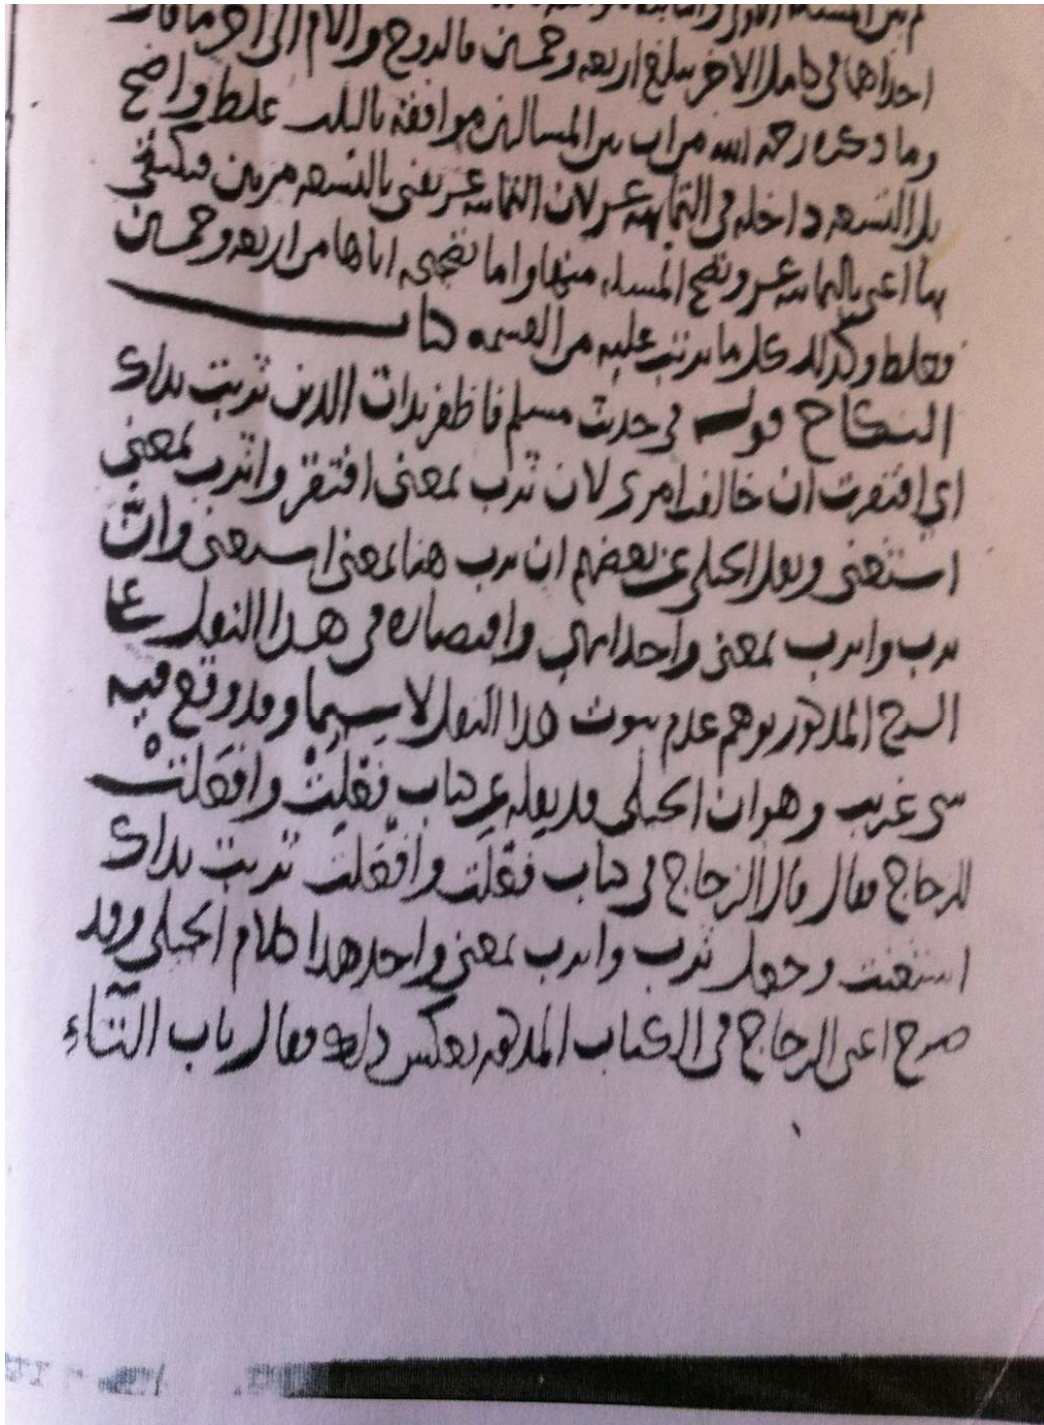 احداهما في كامل الاخرى يبلغ اربعه وخمسين فالزوج والام الى اخر ما قال
وما ذكره رحمه الله من ان بين المسالتين موافقة بالثلث غلط واضح
بل التسعه داخله في الثمانيه عشر لان الثمانيه عشر تفنى بالتسعه مرتين فيكتفى
بها اعني بالثمانيه عشر وتصح المسله منها واما تصحيحه اياها من اربعه وخمسين
فغلط وكذلك كل ما يترتب عليه من القسمه كتاب
النكاح قوله في حديث مسلم فاظفر بذات الدين تربت يداك
اي افتقرت ان خالفت امرى لان ترب بمعنى افتقر واترب بمعنى
استغنى ونقل الجيلي عن بعضهم ان ترب هنا بمعنى استغنى وان
ترب واترب بمعنى واحد انتهى واقتصاره في هذا النقل على
الشرح المذكور يوهم عدم ثبوت هذا النقل لا سيما وقد وقع فيه
شى غريب وهو ان الجيلى قد نقله عن كتاب فَعَلَتْ وافْعَلَتْ
للزجاج فقال قال الزجاج في كتاب فعلت وافعلت تربت يداك
استغنت وجعل ترب واترب بمعنى واحد هذا كلام الجيلى وقد
صرح اعنى الزجاج في الكتاب المذكور بعكس ذلك فقال باب التاء